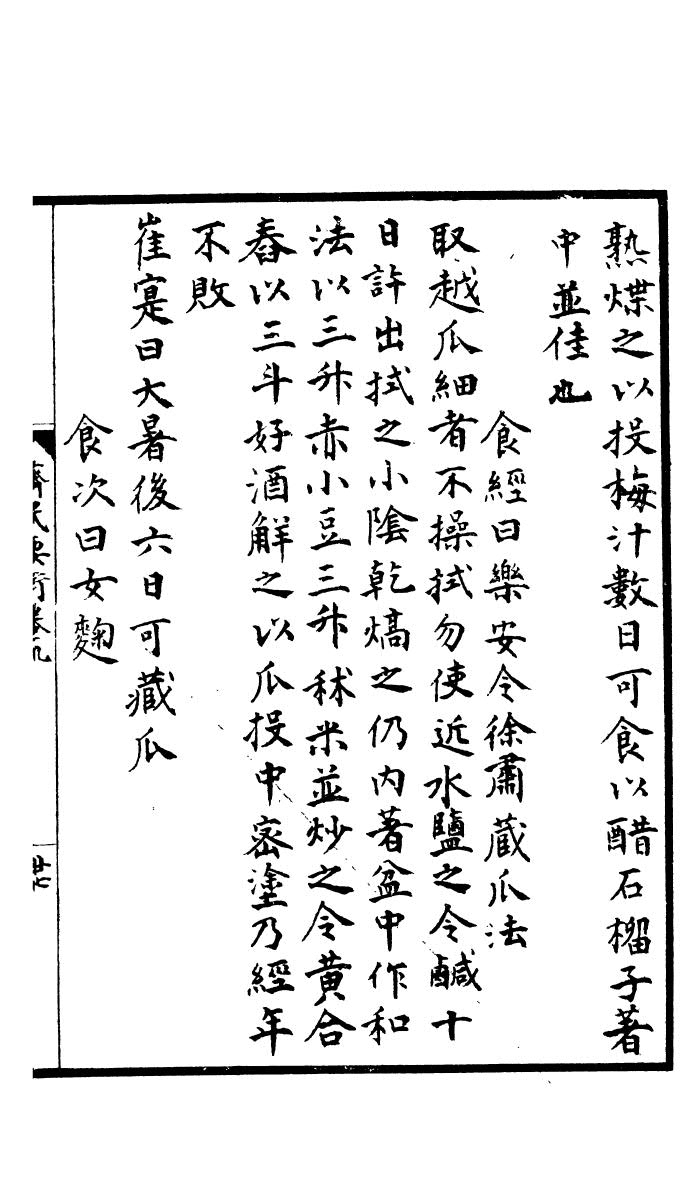 熟煠之以投梅汁數日可食以醋石榴子著
中並佳也
食經曰樂安令徐肅蔵瓜法
取越瓜細者不操拭勿使近水鹽之令鹹十
日許出拭之小隂乾熇之仍内著盆中作和
法以三升赤小豆三升秫米並炒之令黄合
舂以三斗好酒解之以瓜投中宻塗乃經年
不敗
崔寔曰大暑後六日可藏瓜
食次曰女麴
齊民要術卷九
廿七